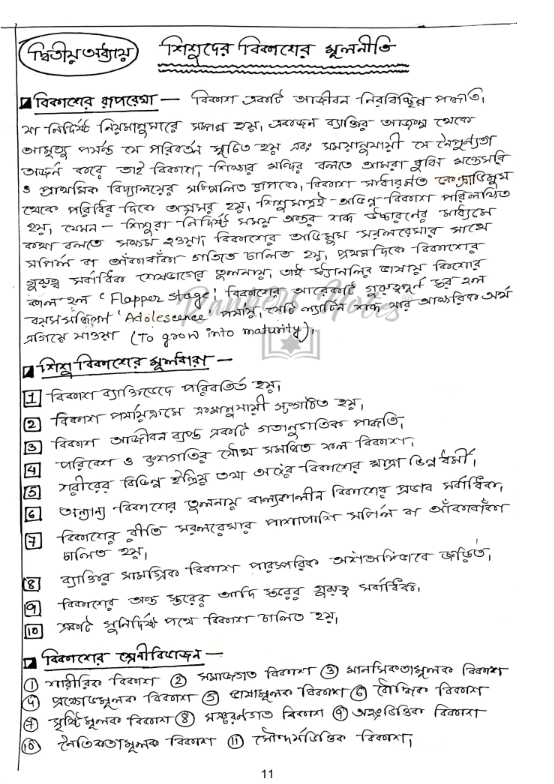 দ্বিতীয় অধ্যায় শিশুদের বিকাশের মূলনীতি
বিকাশের রূপরেখা — বিকাশ একটি আজীবন নিরবিচ্ছিন্ন পদ্ধতি,
যা নির্দিষ্ট নিয়মানুসারে সম্পন্ন হয়, একজন ব্যক্তির আজন্ম থেকে
আমৃত্যু পর্যন্ত যে পরিবর্তন সূচিত হয় এবং সময়ানুযায়ী যে নৈপুণ্যতা
অর্জন করে তাই বিকাশ, শিক্ষার মন্দির বলতে আমরা বুঝি মন্তেসরি
ও প্রাথমিক বিদ্যালয়ের সম্মিলিত রূপকে, বিকাশ সাধারণত কেন্দ্রাভিমুখ
থেকে পরিধির দিকে অগ্রসর হয়, শিশুমাত্রই অভিন্ন বিকাশ পরিলক্ষিত
হয়, যেমন – শিশুরা নির্দিষ্ট সময় অন্তর শব্দ উচ্চারণের মাধ্যমে
কথা বলতে সক্ষম হওয়া, বিকাশের অভিমুখ সরলরেখার সাথে
সর্পিল বা আঁকাবাঁকা গতিতে চালিত হয়, প্রথমদিকে বিকাশের
গুরুত্ব সর্বাধিক শেষভাগের তুলনায়, তাই স্ট্যানলির ভাষায় কিশোর
কাল হল 'Flapper stage' বিকাশের আরেকটি গুরুত্বপূর্ণ স্তর হল
বয়ঃসন্ধিকাল 'Adolescence' পর্যায়, যেটি ল্যাটিন শব্দ যার আক্ষরিক অর্থ
এগিয়ে যাওয়া (To grow into maturity),
শিশু বিকাশের মূলধারা —
1 বিকাশ ব্যক্তিভেদে পরিবর্তিত হয়,
2 বিকাশ পর্যায়ক্রমে ক্রমানুযায়ী সংগঠিত হয়,
3 বিকাশ আজীবন ব্যাপ্ত একটি গতানুগতিক পদ্ধতি,
4 পরিবেশ ও বংশগতির যৌথ সমন্বিত ফল বিকাশ,
5 শরীরের বিভিন্ন ইন্দ্রিয় তথা অঙ্গের বিকাশের মাত্রা ভিন্ন ধর্মী,
6 অন্যান্য বিকাশের তুলনায় বাল্যকালীন বিকাশের প্রভাব সর্বাধিক,
7 বিকাশের রীতি সরলরেখার পাশাপাশি সর্পিল বা আঁকাবাঁকা
চালিত হয়,
8 ব্যক্তির সামগ্রিক বিকাশ পারস্পরিক অঙ্গাঙ্গিভাবে জড়িত,
9 বিকাশের অন্ত স্তরের আদি স্তরের গুরুত্ব সর্বাধিক,
10 একটি সুনির্দিষ্ট পথে বিকাশ চালিত হয়,
বিকাশের শ্রেণীবিভাজন —
① শারীরিক বিকাশ ② সমাজগত বিকাশ ③ মানসিকতামূলক বিকাশ
④ প্রক্ষোভমূলক বিকাশ ⑤ ভাষামূলক বিকাশ ⑥ বৌদ্ধিক বিকাশ
⑦ সৃষ্টিমূলক বিকাশ ⑧ সঞ্চরণগত বিকাশ ⑨ অহংভিত্তিক বিকাশ
⑩ নৈতিকতামূলক বিকাশ ⑪ সৌন্দর্যভিত্তিক বিকাশ,
11